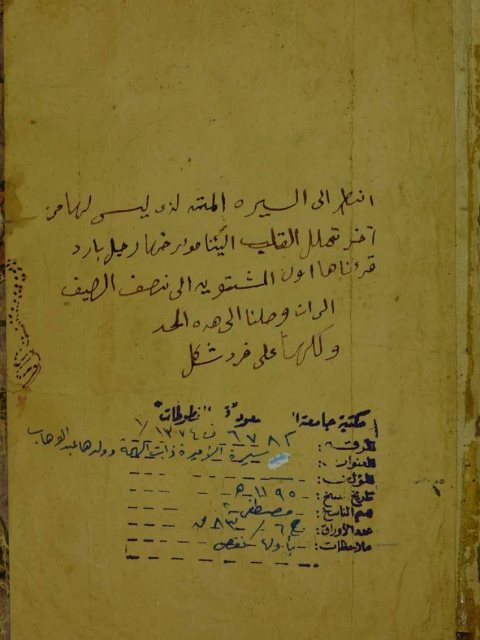 انظر الى السيره المتنه لذى ليس لها من
آخر تعلل القلب
قرئناها اول الشتويه الى نصف الصيف
الى ان وصلنا الى هده الحد
وكلها على فرد شكل
مكتبة جامعة سعود "مخطوطات"
الرقم: ٦٧٨٢
العنوان: سيرة الأميرة ذات الهمة وولدها عبد الوهاب
المؤلف:
تاريخ النسخ: ١١٩٥ هـ
اسم الناسخ: مصطفى
عدد الأوراق: ٨٣ ق
ملاحظات: بأولها نقص